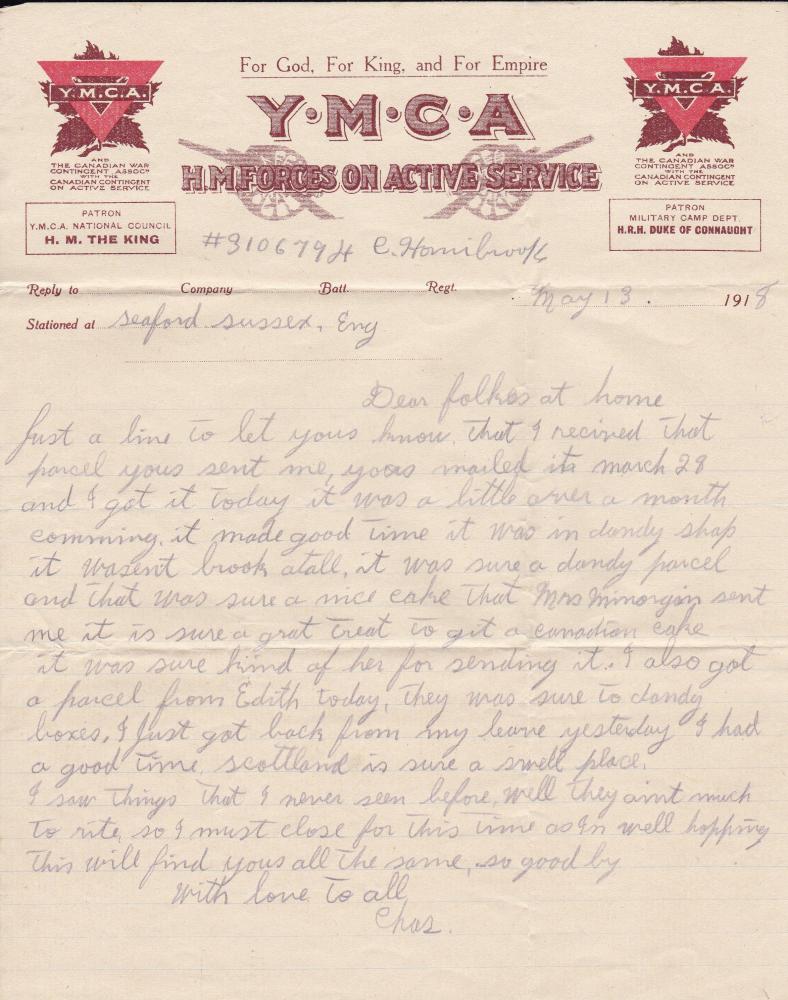 For God, For King, and For Empire
Y·M·C·A
H.M FORCES ON ACTIVE SERVICE
Y.M.C.A.
AND
THE CANADIAN WAR
CONTINGENT ASSOCN
WITH THE
CANADIAN CONTINGENT
ON ACTIVE SERVICE
PATRON
Y.M.C.A. NATIONAL COUNCIL
H. M. THE KING
Y.M.C.A.
AND
THE CANADIAN WAR
CONTINGENT ASSOCN
WITH THE
CANADIAN CONTINGENT
ON ACTIVE SERVICE
PATRON
MILITARY CAMP DEPT.
H.R.H. DUKE OF CONNAUGHT
#3106794 C. Hornibrook
Reply to Company Batt. Regt. May 13. 1918
Stationed at Seaford Sussex, Eng
Dear folkes at home
Just a line to let yous know, that I recived that
parcel yous sent me, yous mailed it march 28
and I got it today it was a little over a month
comming. it made good time it was in dandy shap
it wasent brook atall, it was sure a dandy parcel
and that was sure a nice cake that Mrs sent
me it is sure a grat treat to git a canadian cake
it was sure kind of her for sending it. I also got
a parcel from Edith today, they was sure to dandy
boxes, I just got back from my leave yesterday I had
a good time, scottland is sure a swell place.
I saw things that I never seen before, well they aint much
to rite, so I must close for this time as Im well hopping
this will find yous all the same, so good by
With love to all
Chas.